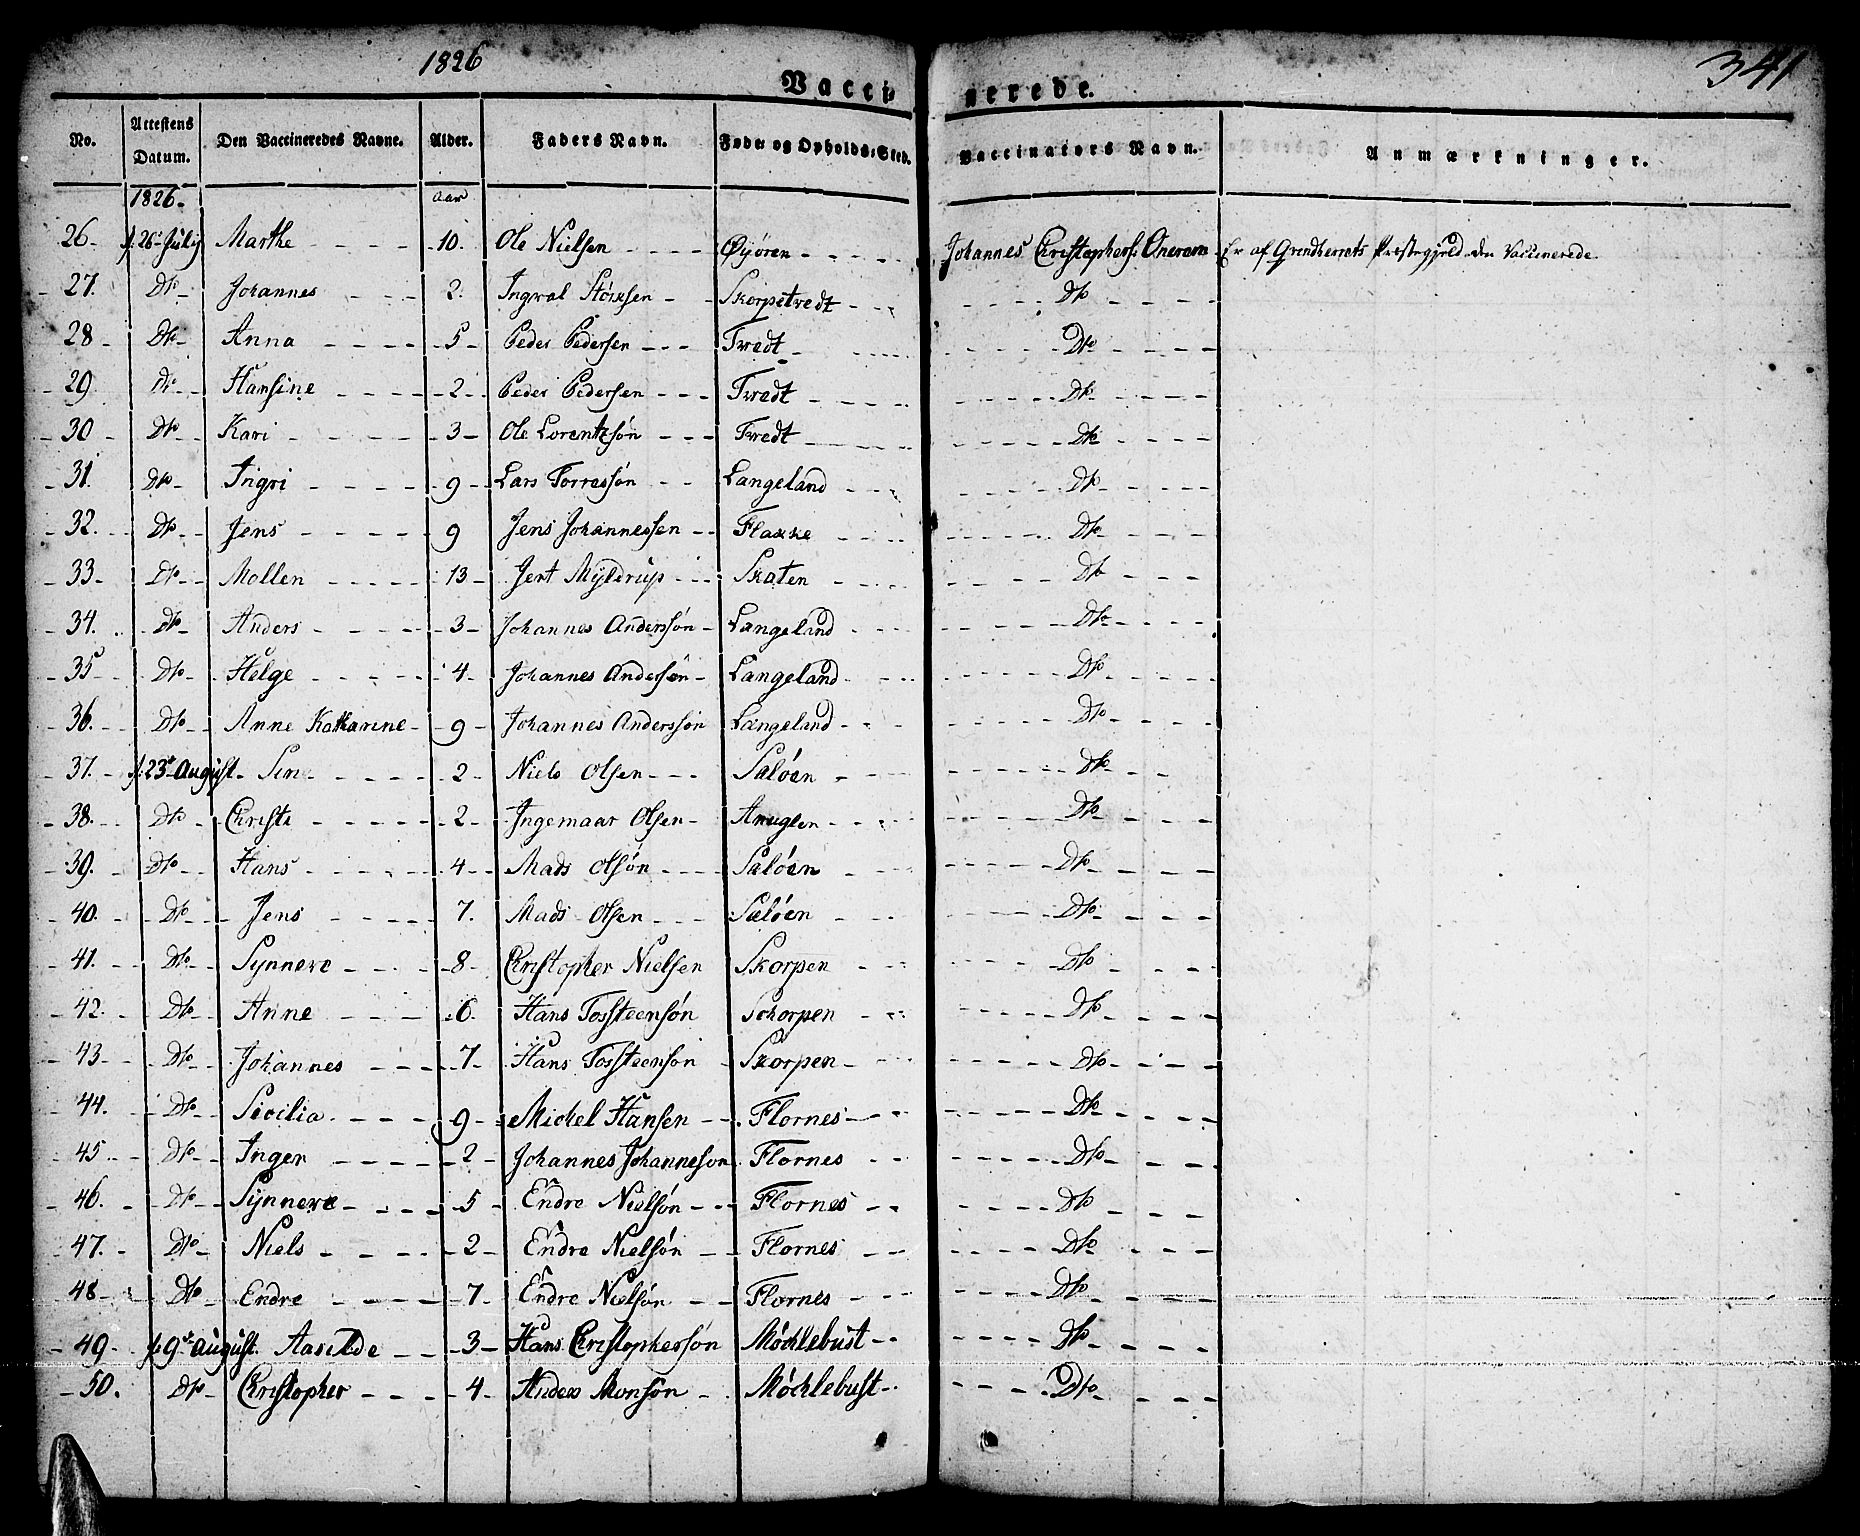 1826
341
Vaccinerede.
No. Attestens Datum. Den Vaccineredes Navne. Alder. Faders Navn. Føde- og Opholds-Sted. Vaccinators Navn. Anmærkninger.
1826. Aar
26 26 July Marthe 10. Ole Nielsen Øyjoren Johannes Christophers: Onerem Er af Præstegjeld den Vaccinerede
27. Do Johannes 2. Ingval Skorpetvedt Do
28 Do Anna 5 Peder Pedersen Tvedt Do
29 Do Hansine 2 Peder Pedersen Tvedt Do
30 Do Kari 3 Ole Lorentzsøn Tvedt Do
31. Do Ingri 9 Lars Torressøn Langeland Do
32. Do Jens 9 Jens Johannessen Flakke Do
33 Do Mollen 13 Jert Myldrup Skaten Do
34. Do Anders 3 Johannes Anderssøn Langeland Do
35 Do Helge 4 Johannes Andersøn Langeland Do
36. Do Anne Katharine 9 Johannes Anderssøn Langeland Do
37. 23de August Sine 2 Niels Olsen Saløen Do
38. Do Christi 2 Ingemaar Olsen Anuglen Do
39. Do Hans 4 Mads Olsøn Saløen Do
40. Do Jens 7. Mads Olsen Sæløen Do
41. Do Synneve 8 Christopher Nielsen Skorpen Do
42. Do Anne 6 Hans Tossteensøn Schorpen Do
43 Do Johannes 7 Hans Tossteensøn Skorpen Do
44. Do Sicilia 9 Mickel Hansen Flornes Do
45 Do Inger 2 Johannes Johanneson Flornes Do
46. Do Synneve 5 Endre Nielsøn Flornes Do
47. Do Niels 2 Endre Nielsøn Flornes Do
48 Do Endre 7 Endre Nielsøn Flornes Do
49 9de August. Aasilde 3 Hans Christophersøn Møchlebust Do
50. Do Christopher 4 Anders Monsøn Møchlebust Do